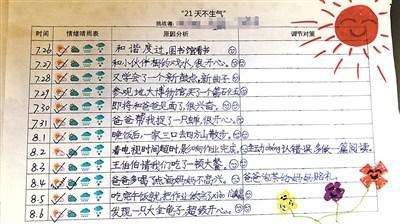 “21天不生气”
挑战者：
时间 情绪晴雨表 原因分析 调整对策
7.26 和谐度过，图书馆看书
7.27 和小伙伴痛快戏水，很开心。
7.28 又学会了一个新 新曲子
7.29 参观地大博物馆买了个
7.30 即将和爸爸见面了很兴奋。
7.31 爸爸帮我捉了一只蝉，很开心
8.1 晚饭后，一家三口去 散步。
8.2 看电视时间超时，影响作业完成。 主动 认错误，多做一篇阅读。
8.3 王伯伯请我们吃了顿大餐。
8.4 爸爸多喝了 妈妈不高兴。 爸爸泡茶给妈妈赔礼。
8.5 吃完午饭就把作业
8.6 发现一只大金龟子，超级开心。